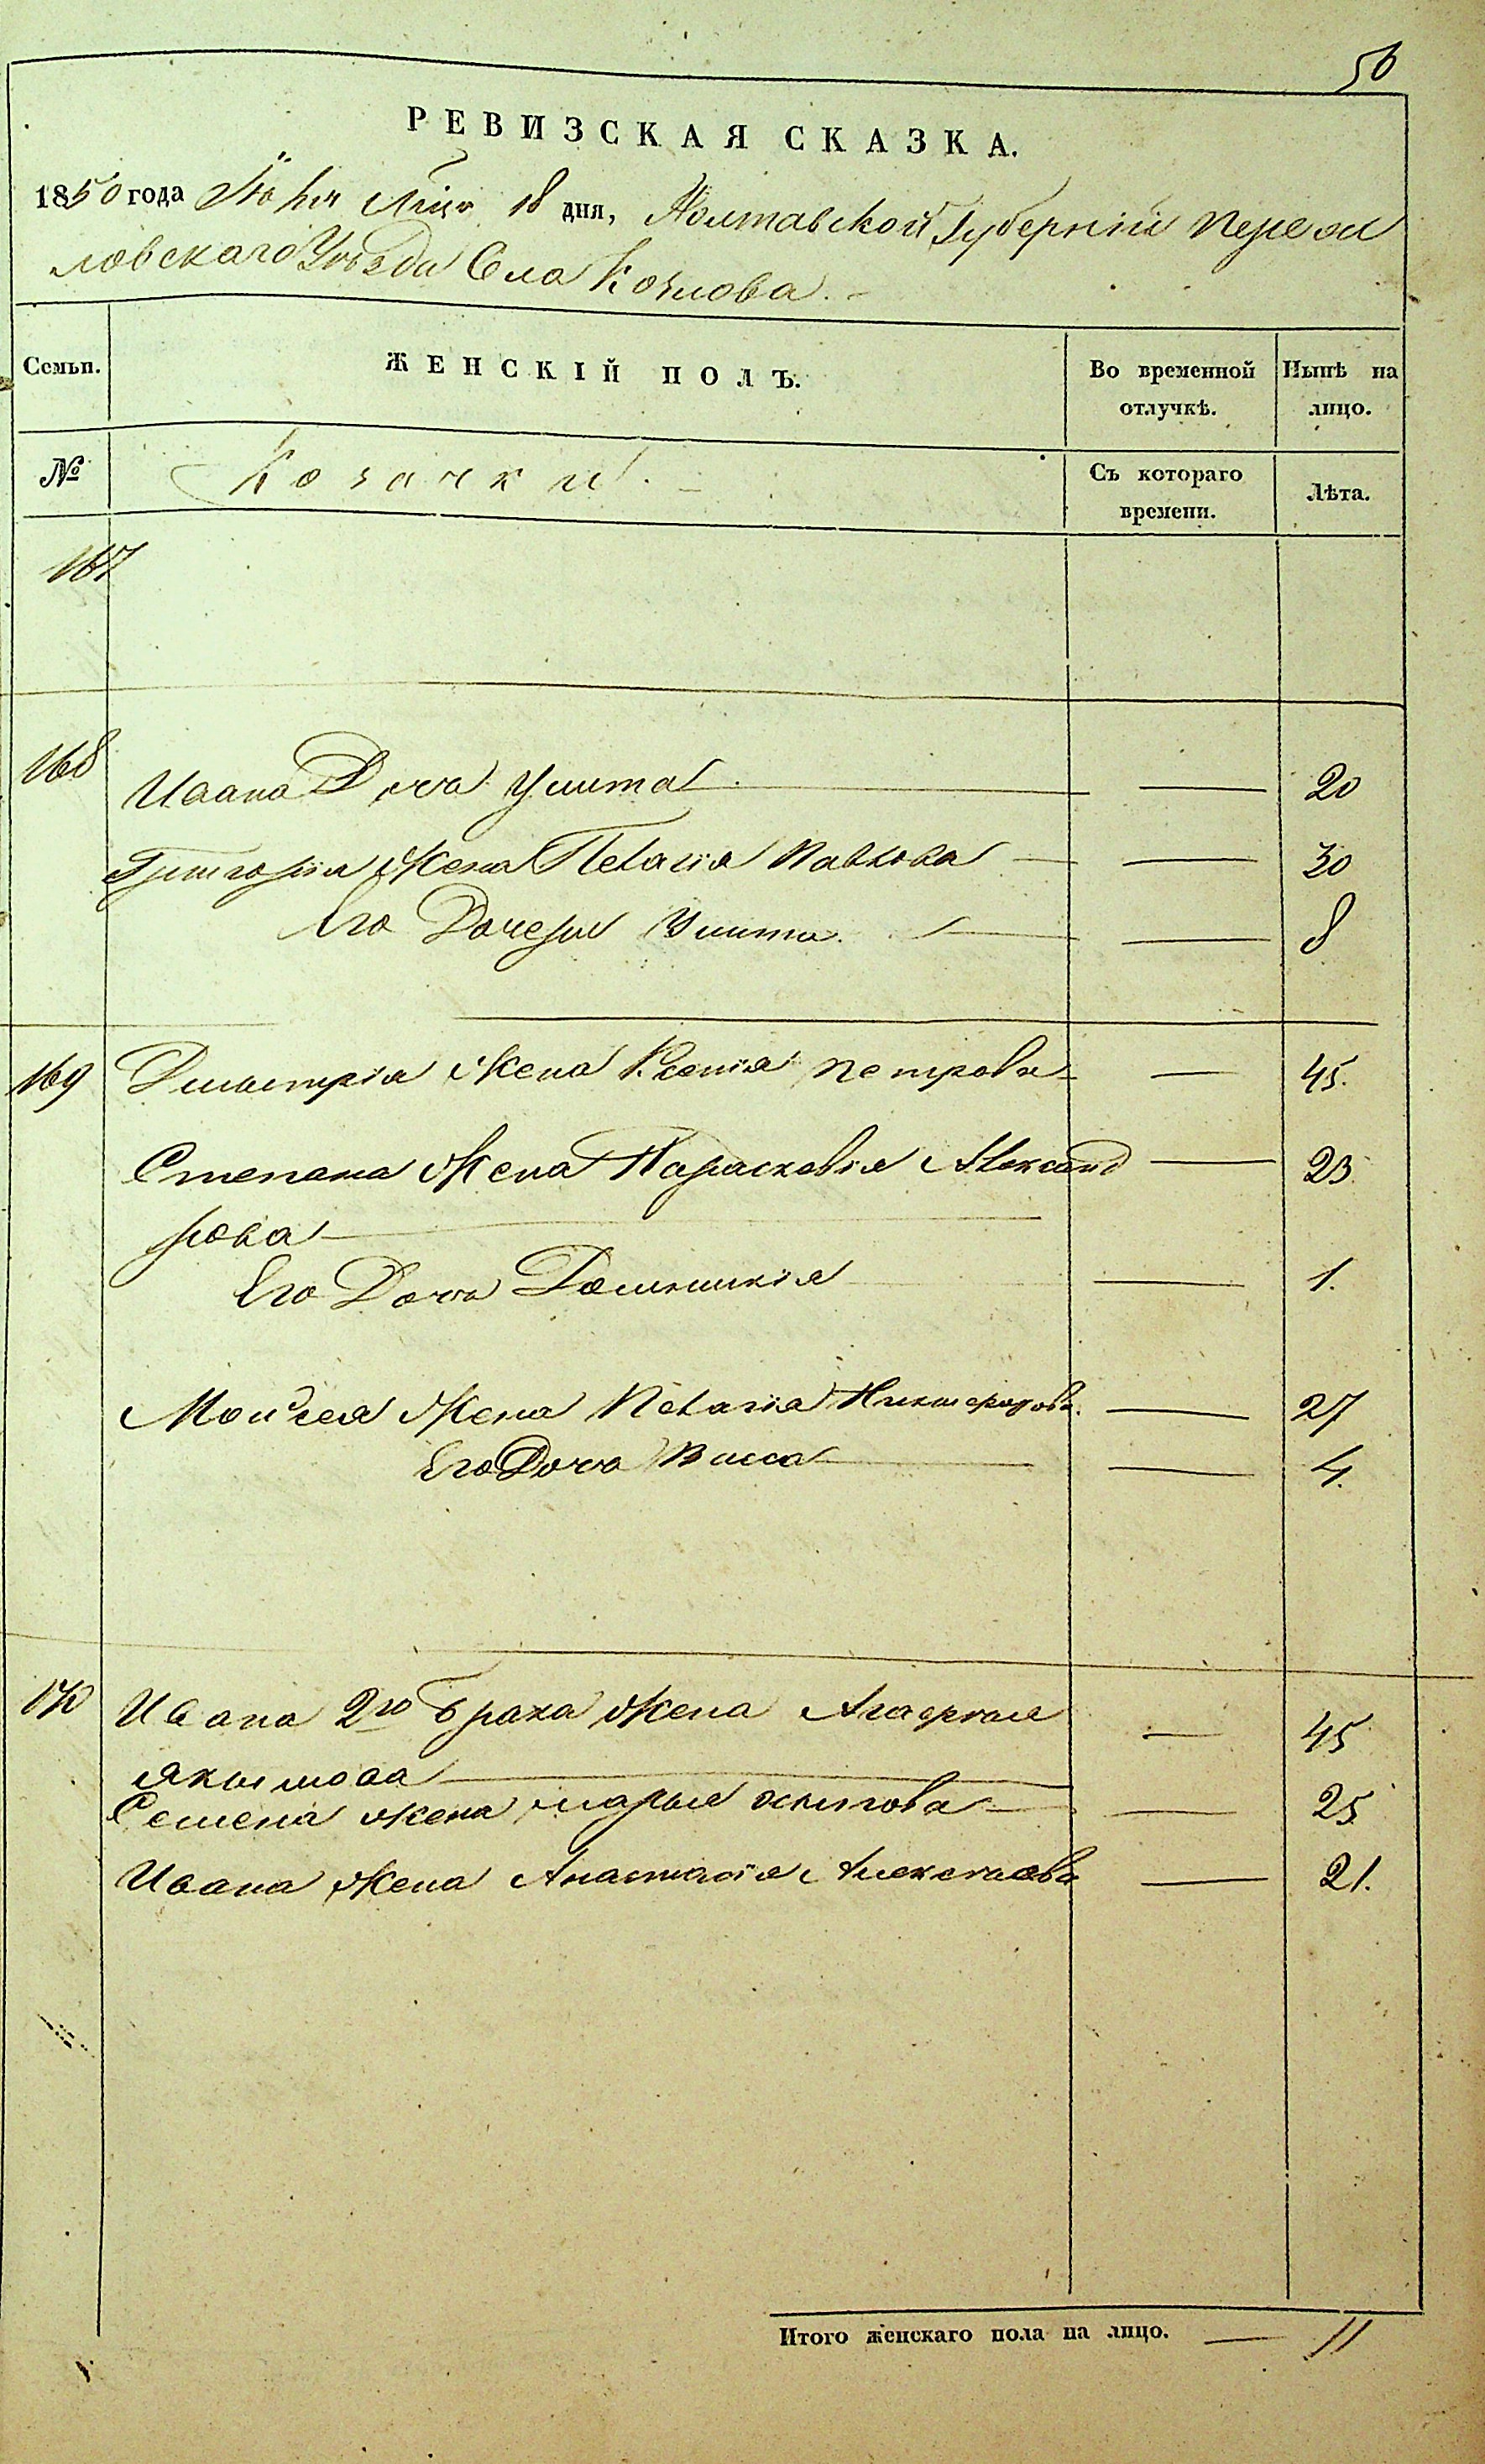 56
РЕВИЗСКАЯ СКАЗКА.
1850 года Іюня 18 дня, Полтавской Губерніи Переяс
ловскаго Уѣзда Села Козлова.
Семьи. ЖЕНСКІЙ ПОЛЪ. Во временной отлучкѣ. Нынѣ на лицо.
№ Козачки. Съ котораго времени. Лѣта.
167
168
Ивана Дочь Улита. — — 20
Григорія Жена Пелагія Павлова — — 30
Его Дочери Улита. — — 8
169 Дмытрія Жена Ксенія Петрова — — 45.
Степана Жена Парасковія Александ — 23
рова —
Его Дочь Домникія — 1.
Моисея Жена Пелагія Никифорова. — 27
Его Дочь Васса — — 4.
170 Ивана 2го брака Жена Агафія — 45
Якымова —
Семена жена марья осипова — — 25
Ивана Жена Анастасія Алексѣева — 21.
Итого женскаго пола на лицо. — 11